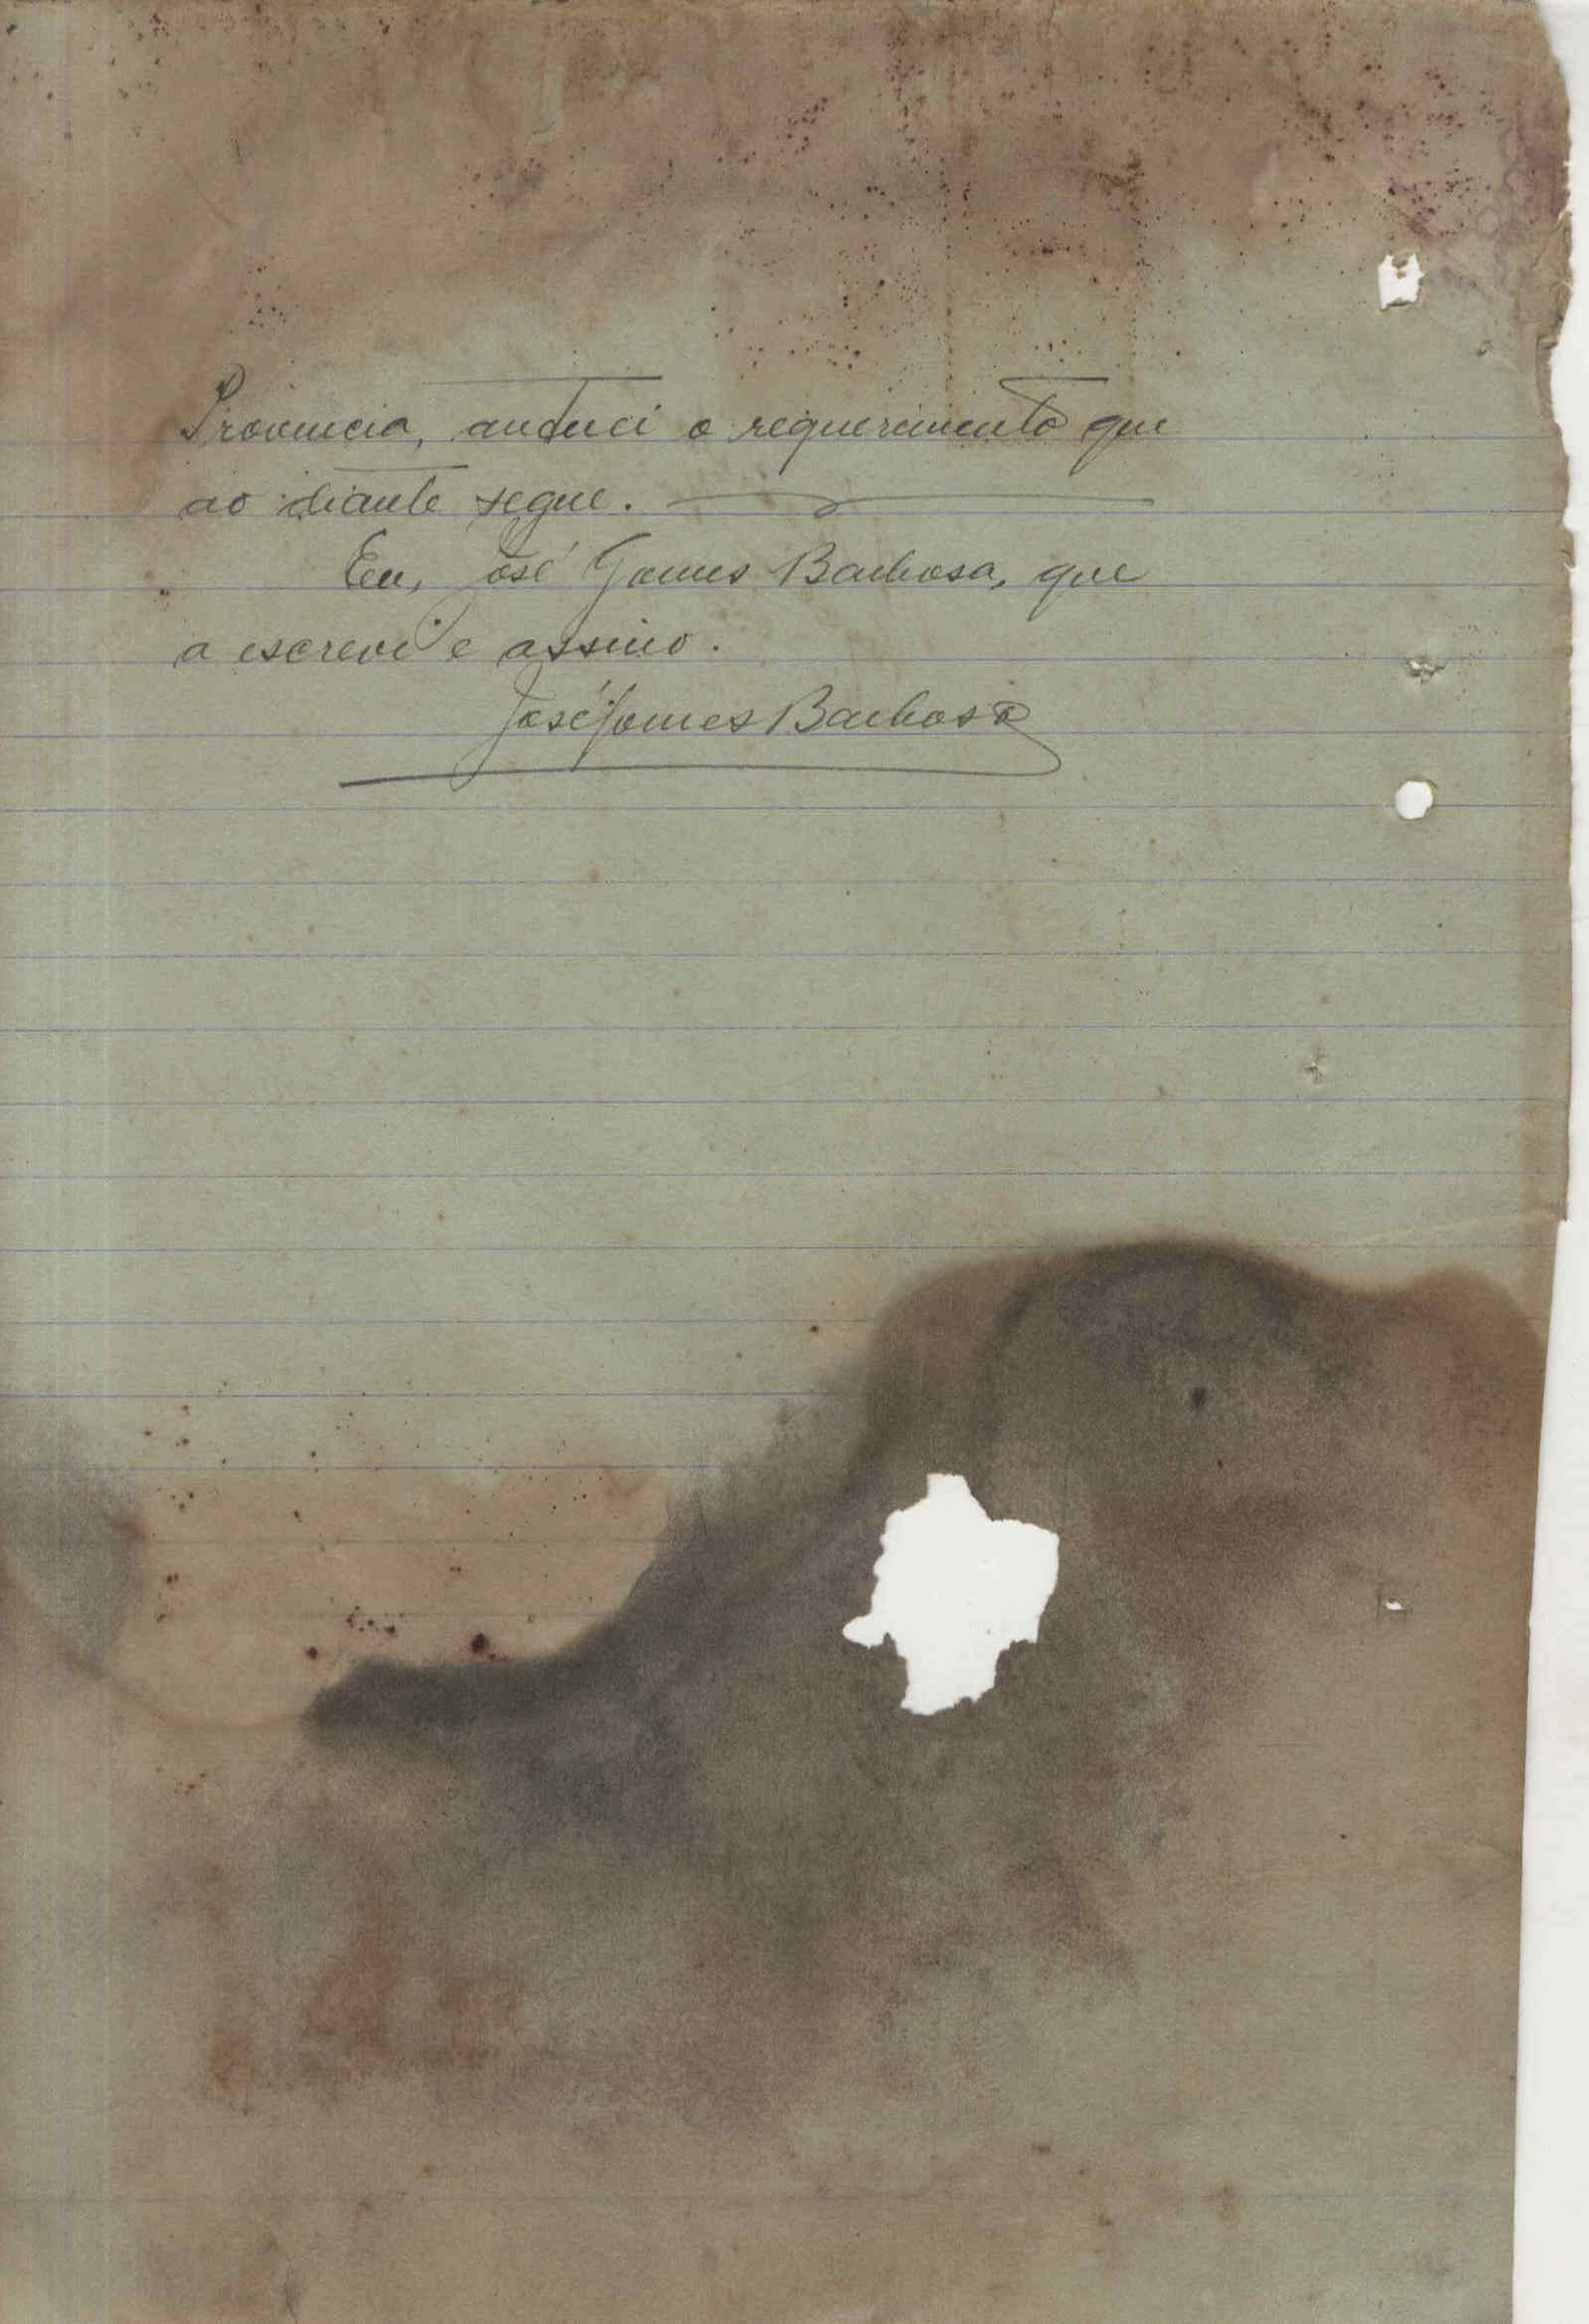 Provincia, autuei o requerimento que
ao diante segue.
Eu, José Gomes Barbosa, que
a escrevi e assino.
José Gomes Barbosa